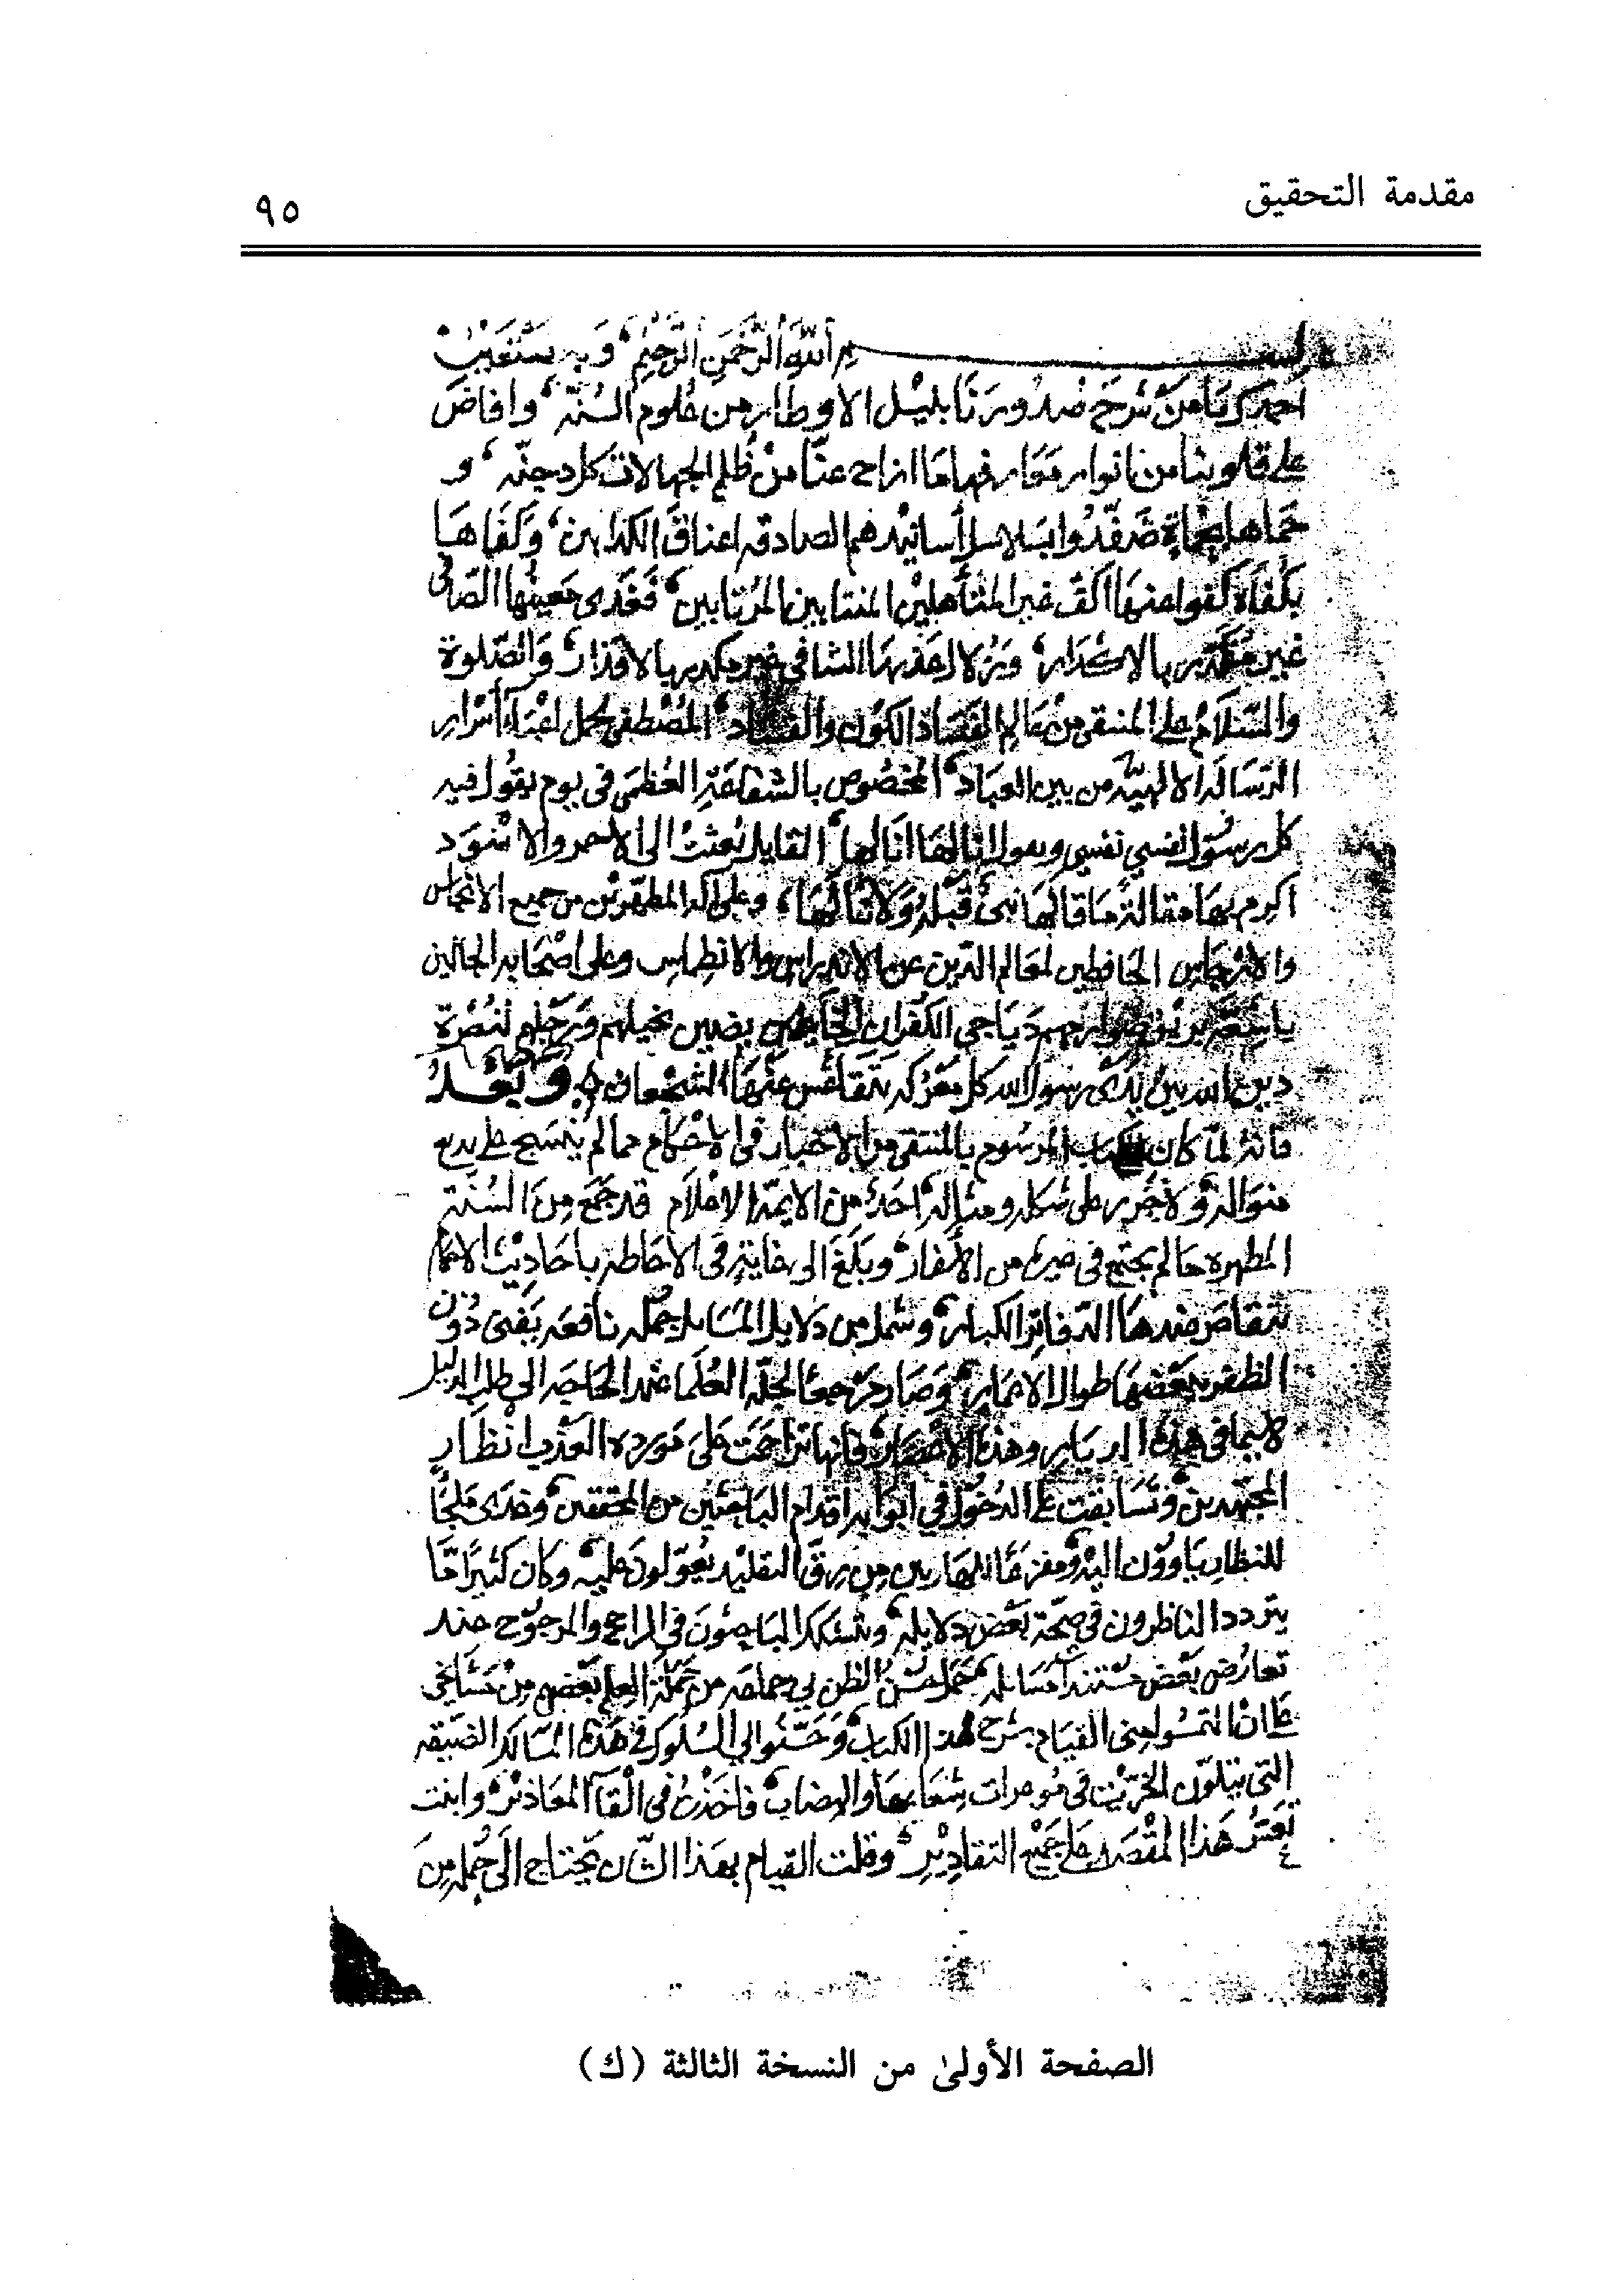 مقدمة التحقيق
٩٥
بسم الله الرحمن الرحيم وبه نستعين
احمدك يا من شرح صدورنا بنيل الاوطار من علوم السنة وافاض
على قلوبنا من انوار معارفها ما ازاح عنا من ظلم الجهالات كل دجنه و
حماها بحماة صفدوا بسلاسل أسانيدهم الصادقه اعناق الكذابين وكفاها
بكفاة كفوا عنها اكف غير المتأهلين المنتابين المرتابين فغدى معينها الصافى
غير مقذر بالاكدار وزلال عذبها الشافى غير مكدر بالاقذار والصلوة
والسلام على المنتقى من عالم الكون والفساد المصطفى لحمل اعباء أسرار
الرسالة الالهية من بين العباد المخصوص بالشفاعة العظمى فى يوم يقول فيه
كل رسول نفسي نفسي ويقول انا لها انا لها القايل بعثت الى الاحمر والاسود
اكرم بها مقالة ما قالها نبى قبله ولا نالها وعلى آله المطهرين من جميع الانجاس
والارجاس الحافظين لمعالم الدين عن الاندراس والانطماس وعلى اصحابه الجالين
باشعة بريق صوارمهم دياجى الكفران الخايضين بخيلهم ورجلهم لنصرة
دين الله بين يدى رسول الله كل معركه تتقاعس عنها الشجعان وبعد
فانه لما كان الكتاب الموسوم بالمنتقى من الاخبار فى الاحكام مما لم ينسج على بديع
منواله ولا حرر على شكله ومثاله احد من الايمة الاعلام قد جمع من السنة
المطهره ما لم يجتمع فى غيره من الأسفار وبلغ الى غاية فى الاحاطه باحاديث الاحكام
تتقاصر عندها الدفاتر الكبار وشمل من دلايل المسايل جملة نافعه يفنى دون
الظفر ببعضها طوال الاعمار وصار مرجعا لجلة العلما عند الحاجه الى طلب الدليل
لاسيما فى هذه الديار وهذه الاعصار فانها تزاحمت على مورده العذب انظار
المجتهدين وتسابقت على الدخول في ابوابه اقدام الباحثين من المحققين وغدى ملجأ
للنظار ياوون اليه ومفزعا للهاربين من رق التقليد يعولون عليه وكان كثيرا ما
يتردد الناظرون فى صحة بعض دلايله وتشكك الباحثون فى الراجح والمرجوح عند
تعارض بعض مستندات مسائله حمل حسن الظن بي جماعه من حملة العلم بعضهم من مشايخى
على ان التمسوا منى القيام بشرح هذا الكتاب وحسنوا لى السلوك فى هذه المسالك الضيقه
التى يتلون الخريت فى موعرات شعابها والهضاب فاخذت فى القآ المعاذير وابنت
تعسر هذا المقصد على جميع التقادير وقلت القيام بهذا الشان يحتاج الى جملة من
الصفحة الأولى من النسخة الثالثة (ك)